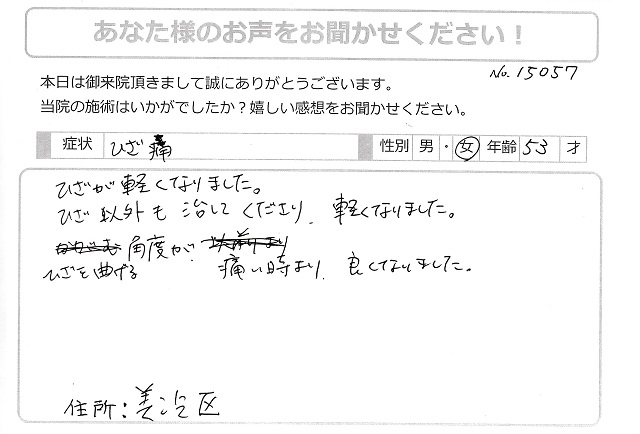 あなた様のお声をお聞かせください！
No. 15057
本日は御来院頂きまして誠にありがとうございます。
当院の施術はいかがでしたか？嬉しい感想をお聞かせください。
症状 ひざ痛 性別 男・女 年齢 53 才
ひざが軽くなりました。
ひざ以外も治してくださり、軽くなりました。
角度が
ひざを曲げる 痛い時より、良くなりました。
住所：美冷区